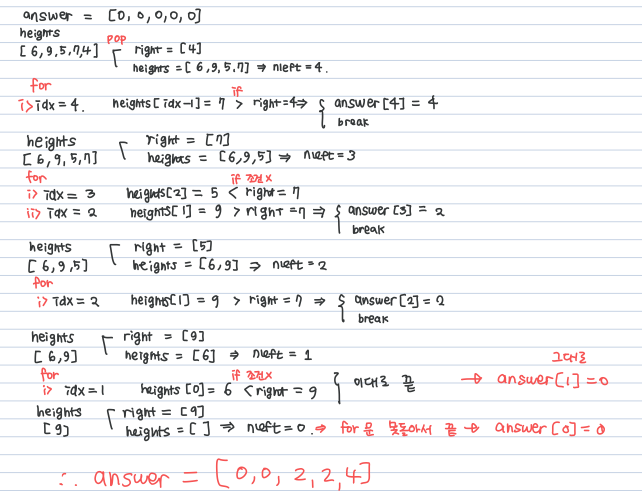 answer = [0, 0, 0, 0, 0]
heights
[6, 9, 5, 7, 4] pop right = [4]
heights = [6, 9, 5, 7] ⇒ nleft = 4.
for
i> idx = 4. heights[idx-1] = 7 > right = 4 ⇒ { answer[4] = 4
if
break
heights right = [7]
[6, 9, 5, 7] heights = [6, 9, 5] ⇒ nleft = 3
for if 조건X
i> idx = 3 heights[2] = 5 < right = 7
ii> idx = 2 heights[1] = 9 > right = 7 ⇒ { answer[3] = 2
break
heights right = [5]
[6, 9, 5] heights = [6, 9] ⇒ nleft = 2
for
i> idx = 2 heights[1] = 9 > right = 7 ⇒ { answer[2] = 2
break
heights right = [9]
[6, 9] heights = [6] ⇒ nleft = 1 그대로
for if 조건X
i> idx = 1 heights[0] = 6 < right = 9 } 이대로 끝 → answer[1] = 0
heights right = [9]
[9] heights = [ ] ⇒ nleft = 0. ⇒ for문 못돌아서 끝 → answer[0] = 0
∴ answer = [0, 0, 2, 2, 4]